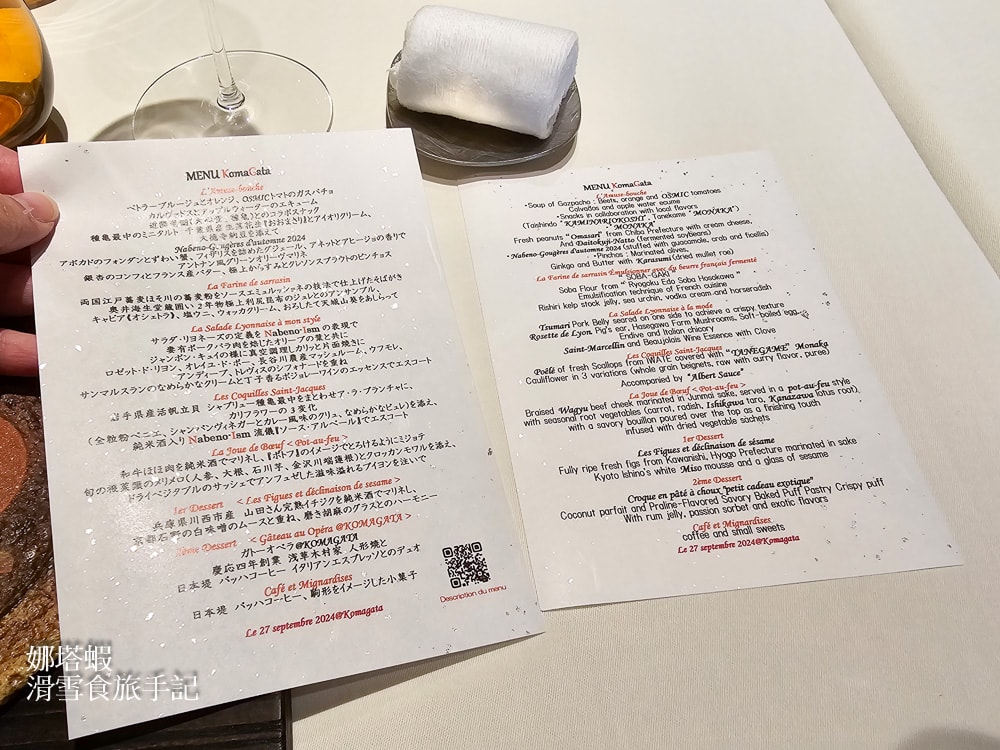 MENU KomaGata
L'Amuse-bouche
ベトラーブルージュとオレンジ、OSMICトマトのガスパチョ
カルヴァドスとアップルウォーターのエキューム
とのコラボスナック
種亀最中のミニタルト 千葉県産生落花生《おおまさり》とアイオリクリーム、
大徳寺納豆を添えて
Nabeno-G.ugères d'automne 2024
アボカドのフォンダンとずわい蟹、フィサリスを詰めたグジェール、アネットとアヒージョの香りで
アントナン風グリーンオリーヴマリネ
銀杏のコンフィとフランス産バター、極上からすみとクレソンスプラウトのピンチョス
La Farine de sarrasin
両国江戸蕎麦ほそ川の蕎麦粉をソースエミュルッションネの技法で仕上げたそばがき
奥井海生堂蔵囲い2年物極上利尻昆布のジュレとのアンサンブル、
キャビア《オシェトラ》、塩ウニ、ウォッカクリーム、おろしたて天城山葵をあしらって
La Salade Lyonnaise à mon style
サラダ・リヨネーズの定義を Nabeno-Ism の表現で
妻有ポークバラ肉を焙じたオリーブの葉と共に
ジャンボン・キュイの様に真空調理しカリッと片面焼きに
ロゼット・ド・リヨン、オレイユ・ド・ポー、長谷川農産マッシュルーム、ウフモレ、
アンディーブ、トレヴィスのシフォナードを重ね
サンマルスランのなめらかなクリームと丁子香るボジョレーワインのエッセンスでエスコート
Les Coquilles Saint-Jacques
岩手県産活帆立貝 シャプリュー種亀最中をまとわせア・ラ・プランチャに、
カリフラワーの3変化
(全粒粉ベニエ、シャンパンヴィネガーとカレー風味のクリュ、なめらかなピュレ)を添え、
純米酒入り Nabeno-Ism 流儀『ソース・アルベール』でエスコート
La Joue de Bœuf < Pot-au-feu >
和牛ほほ肉を純米酒でマリネし、『ポトフ』のイメージでとろけるようにミジョテ
旬の根菜類のメリメロ(人参、大根、石川芋、金沢川端蓮根)とクロッカンモワルを添え、
ドライベジタブルのサッシェでアンフュゼした滋味溢れるブイヨンを注いで
1er Dessert < Les Figues et déclinaison de sesame >
兵庫県川西市産 山田さん完熟イチジクを純米酒でマリネし、
京都石野の白味噌のムースと重ね、磨き胡麻のグラスとのハーモニー
2ème Dessert < Gâteau au Opéra @KOMAGATA >
ガトーオペラ@KOMAGATA
慶応四年創業 浅草木村家 人形焼と
日本堤 バッハコーヒー イタリアンエスプレッソとのデュオ
Café et Mignardises
日本堤 バッハコーヒー、駒形をイメージした小菓子
Le 27 septembre 2024@Komagata
Description du menu
MENU KomaGata
L'Amuse-bouche
•Soup of Gazpacho : Beets, orange and OSMIC tomatoes
Calvados and apple water ecume
•Snacks in collaboration with local flavors
(Taishindo "KAMINARIOKOSHI", Tanekame "MONAKA")
• "MONAKA"
Fresh peanuts "Omasari" from Chiba Prefecture with cream cheese,
And Daitokuji-Natto (fermented soybeans)
•Nabeno-Gougères d'automne 2024 (stuffed with guacamole, crab and ficellis)
•Pinchos : Marinated olives,
Ginkgo and Butter with Karasumi (dried mullet roe)
La Farine de sarrasin Émulsionner avec du beurre français fermenté
" SOBA-GAKI "
Soba Flour from " Ryogoku Edo Soba Hosokawa "
Emulsification technique of French cuisine
Rishiri kelp stock jelly, sea urchin, vodka cream and horseradish
La Salade Lyonnaise à la mode
Tsumari Pork Belly seared on one side to achieve a crispy texture
Rosette de Lyon, Pig's ear, Hasegawa Farm Mushrooms, Soft-boiled egg,
Endive and Italian chicory
Saint-Marcellin and Beaujolais Wine Essence with Clove
Les Coquilles Saint-Jacques
Poêlé of fresh Scallops from IWATE covered with "TANEGAME" Monaka
Cauliflower in 3 variations (whole grain beignets, raw with curry flavor, puree)
Accompanied by "Albert Sauce"
La Joue de Bœuf < Pot-au-feu >
Braised Wagyu beef cheek marinated in Junmai sake, served in a pot-au-feu style
with seasonal root vegetables (carrot, radish, Ishikawa taro, Kanazawa lotus root),
with a savory bouillon poured over the top as a finishing touch
infused with dried vegetable sachets
1er Dessert
Les Figues et déclinaison de sésame
Fully ripe fresh figs from Kawanishi, Hyogo Prefecture marinated in sake
Kyoto Ishino's white Miso mousse and a glass of sesame
2ème Dessert
Croque en pâté à choux "petit cadeau exotique"
Coconut parfait and Praline-Flavored Savory Baked Puff Pastry Crispy puff
With rum jelly, passion sorbet and exotic flavors
Café et Mignardises
coffee and small sweets
Le 27 septembre 2024@Komagata
娜塔蝦
滑雪食旅手記